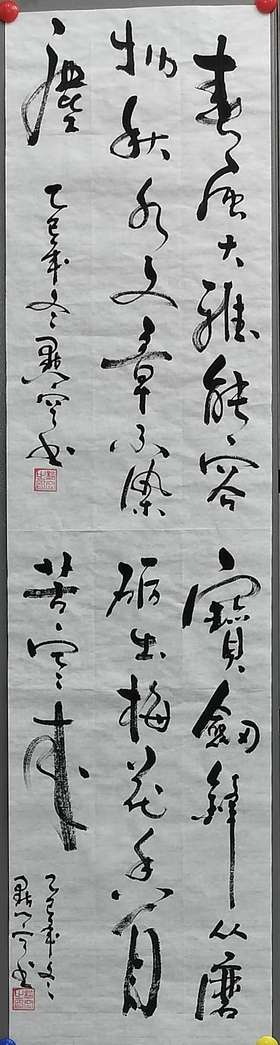 春風大雅能容
物秋水文章不染
塵
乙巳年冬
寶劍鋒从磨
礪出梅花香自
苦寒來
乙巳年冬